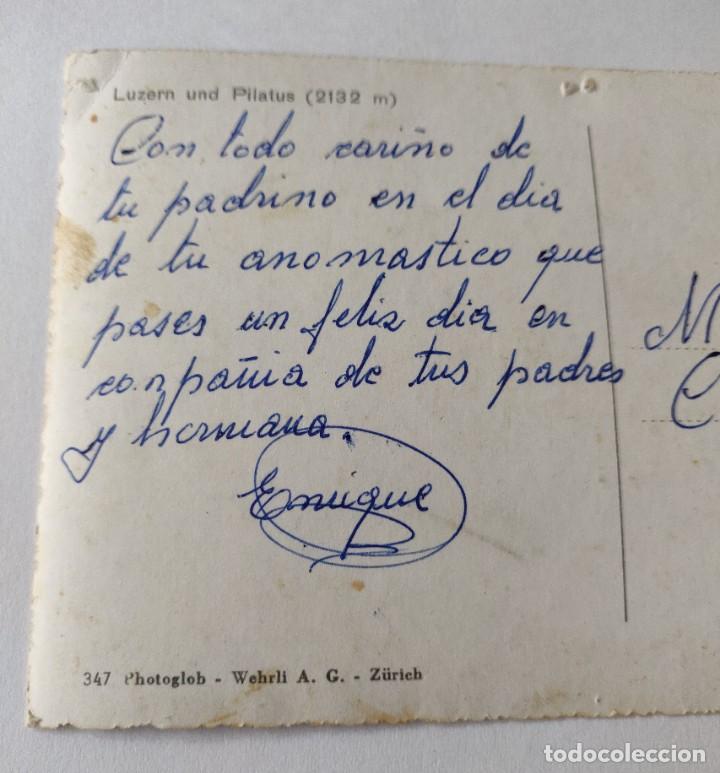 Luzern und Pilatus (2132 m)
Con todo cariño de
tu padrino en el dia
de tu anomastico que
pases un feliz dia en
conpañia de tus padres
y hermana.
Enrique
M
C
347 Photoglob - Wehrli A. G. - Zürich
todocoleccion
todocoleccion.net